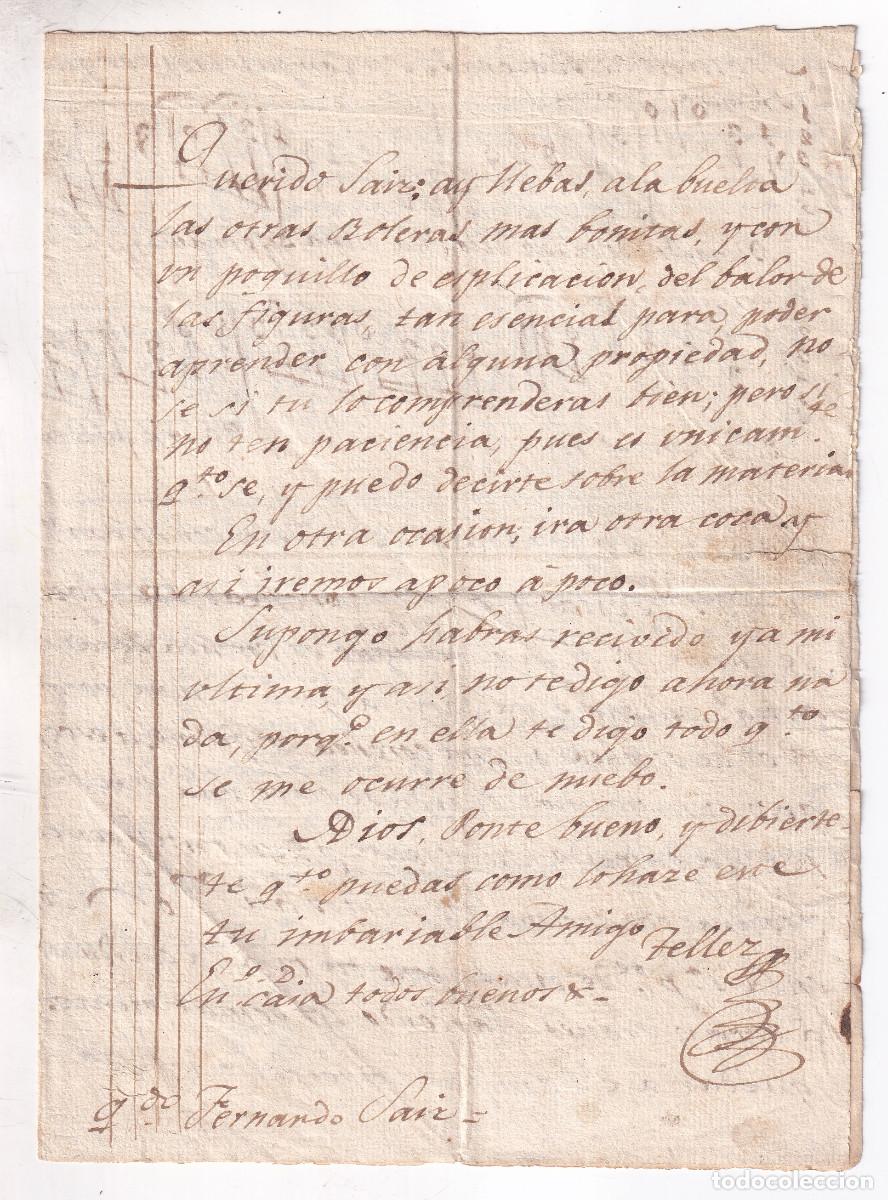 Querido Saiz: ay llebas, a la buelta
las otras Boleras mas bonitas, y con
un poquillo de esplicacion, del balor de
las figuras, tan esencial para, poder
aprender con alguna propiedad, no-
se si tu lo comprenderas bien; pero si
no ten paciencia, pues es unicam.te
q.to se, y puedo decirte sobre la materia
En otra ocasion, ira otra cosa y
asi iremos apoco á poco.
Supongo habras recivido ya mi
ultima, y asi, no te digo ahora na
da, porq.e en ella te digo todo q.to
se me ocurre de nuebo.
ADios, Ponte bueno, y dibierte-
te q.to puedas como lo haze este
tu imbariable Amigo
Tellez
todos buenos &-
q.do Fernando Saiz-
todocoleccion